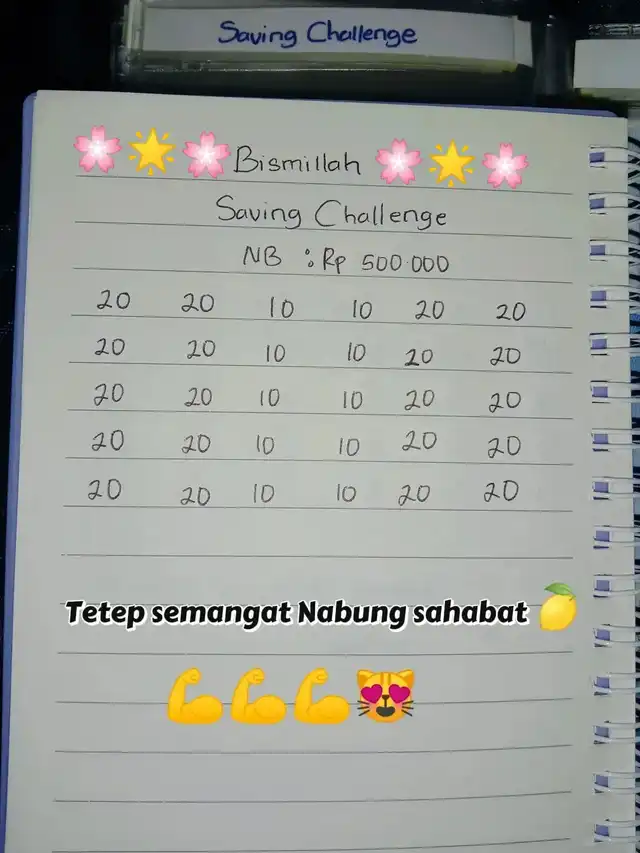 Saving Challenge
Bismillah
Saving Challenge
NB : Rp 500.000
20 20 10 10 20 20
20 20 10 10 20 20
20 20 10 10 20 20
20 20 10 10 20 20
20 20 10 10 20 20
Tetep semangat Nabung sahabat